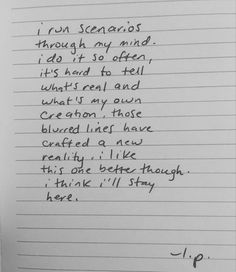 i run scenarios
through my mind.
i do it so often,
it's hard to tell
what's real and
what's my own
creation. those
blurred lines have
crafted a new
reality. i like
this one better though.
i think i'll stay
here.
~l.p.